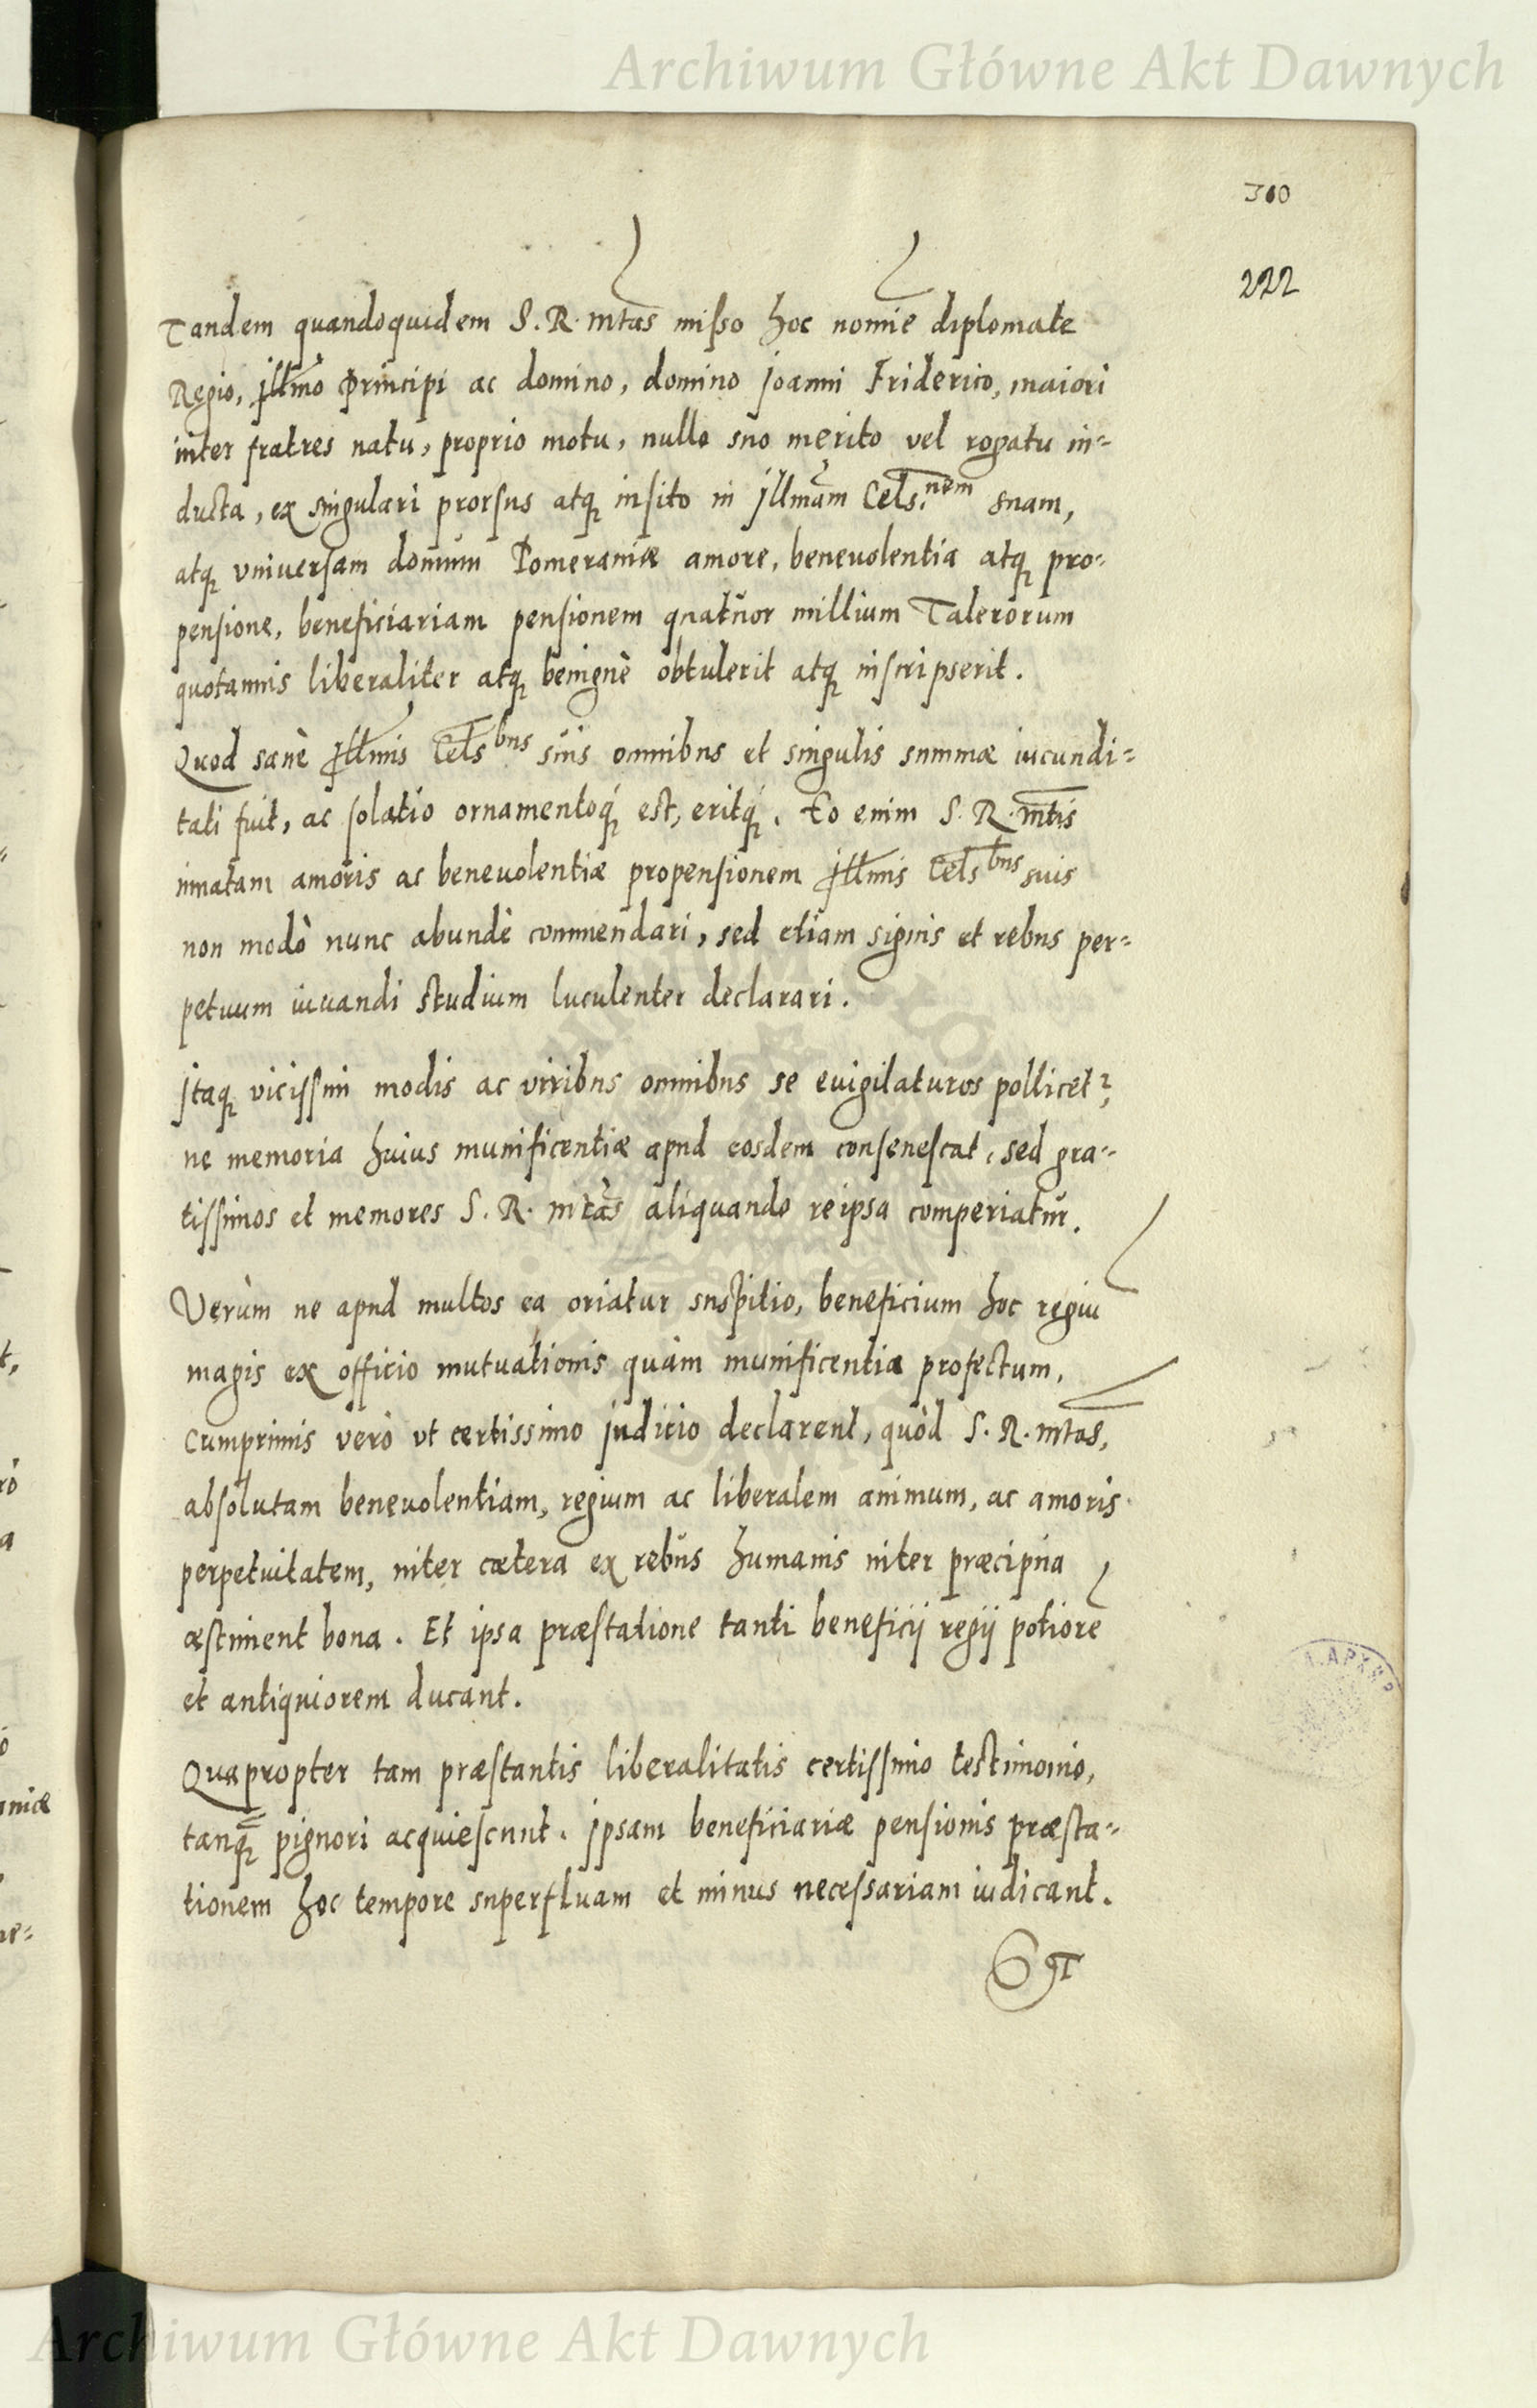 Archiwum Główne Akt Dawnych
300
222
Tandem quandoquidem S. R. mtas misso hoc nomīe diplomate
Regio, jllmo Principi ac domino, domino Joanni Friderico, maiori
inter fratres natu, proprio motu, nullo suo merito vel rogatu in=
ducta, ex singulari prorsus atq insito in jllmam Cels.nem suam,
atq vniuersam domum Pomeraniæ amore, beneuolentia atq pro=
pensione, beneficiariam pensionem quatuor millium Talerorum
quotannis liberaliter atq benignè obtulerit atq inscripserit.
Quod sanè jllmis Cels bus suis omnibus et singulis summæ iucundi=
tati fuit, ac solatio ornamentoq́ est, eritq́. Eo enim S. R. mtis
innatam amoris ac beneuolentiæ propensionem jllmis Cels bus suis
non modò nunc abundè commendari, sed etiam signis et rebus per=
petuum iuuandi studium luculenter declarari.
Jtaq vicissim modis ac viribus omnibus se euigilaturos pollicet,
ne memoria huius munificentiæ apud eosdem consenescat, sed gra=
tissimos et memores S. R. mtas aliquando reipsa comperiatur.
Verùm ne apud multos ea oriatur suspitio, beneficium hoc regiū
magis ex officio mutuationis quàm munificentia profectum,
Cumprimis verò vt certissimo judicio declarent, quòd S. R. mtas,
absolutam beneuolentiam, regium ac liberalem animum, ac amoris
perpetuitatem, inter cætera ex rebus humanis inter præcipua
æstiment bona. Et ipsa præstatione tanti beneficij regij potiorē
et antiquiorem ducant.
Quapropter tam præstantis liberalitatis certissimo testimonio,
tanq̄ pignori acquiescunt. Jpsam beneficiariæ pensionis præsta=
tionem hoc tempore superfluam et minus necessariam iudicant.
Archiwum Główne Akt Dawnych